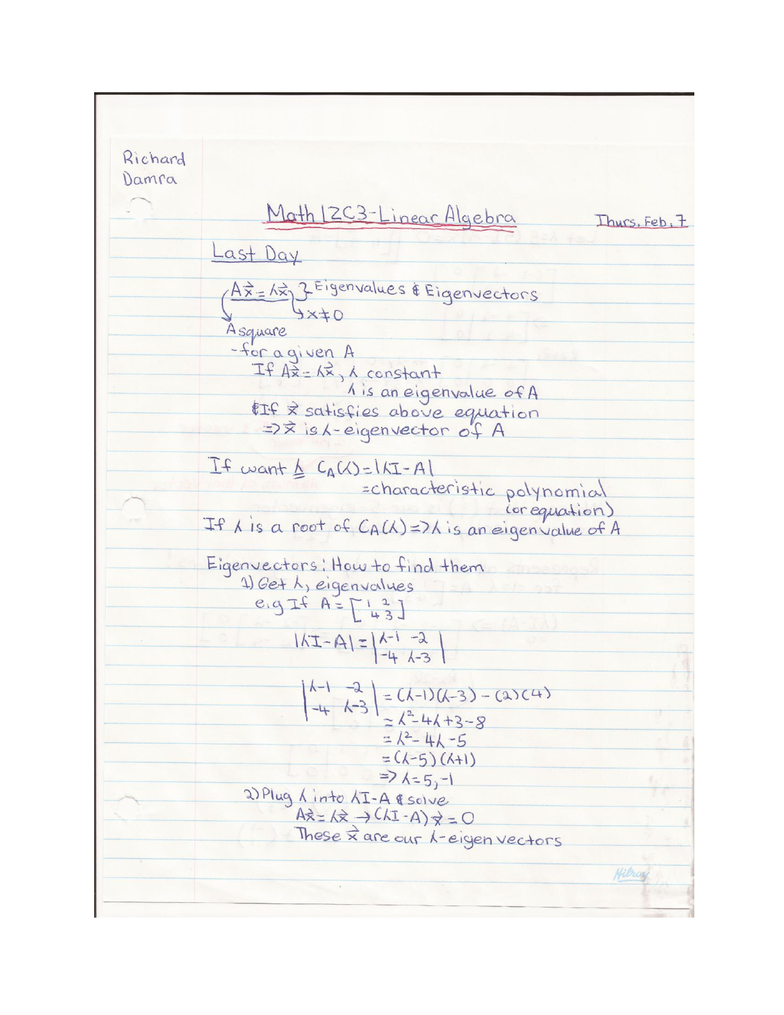 Richard
Damra
Math 1ZC3-Linear Algebra
Thurs, Feb, 7
Last Day
Ax⃗ = λx⃗ } Eigenvalues & Eigenvectors
↳ x≠0
A square
- for a given A
If Ax⃗ = λx⃗, λ constant
λ is an eigenvalue of A
& If x⃗ satisfies above equation
=> x⃗ is λ-eigenvector of A
If want λ C_A(λ) = |λI-A|
= characteristic polynomial
(or equation)
If λ is a root of C_A(λ) => λ is an eigenvalue of A
Eigenvectors: How to find them
1) Get λ, eigenvalues
e.g If A = [1 2
4 3]
|λI-A| = |λ-1 -2
-4 λ-3|
|λ-1 -2
-4 λ-3| = (λ-1)(λ-3) - (2)(4)
= λ²-4λ+3-8
= λ²-4λ-5
= (λ-5)(λ+1)
=> λ=5,-1
2) Plug λ into λI-A & solve
Ax⃗ = λx⃗ → (λI-A) x⃗ = 0
These x⃗ are our λ-eigenvectors
Hilroy